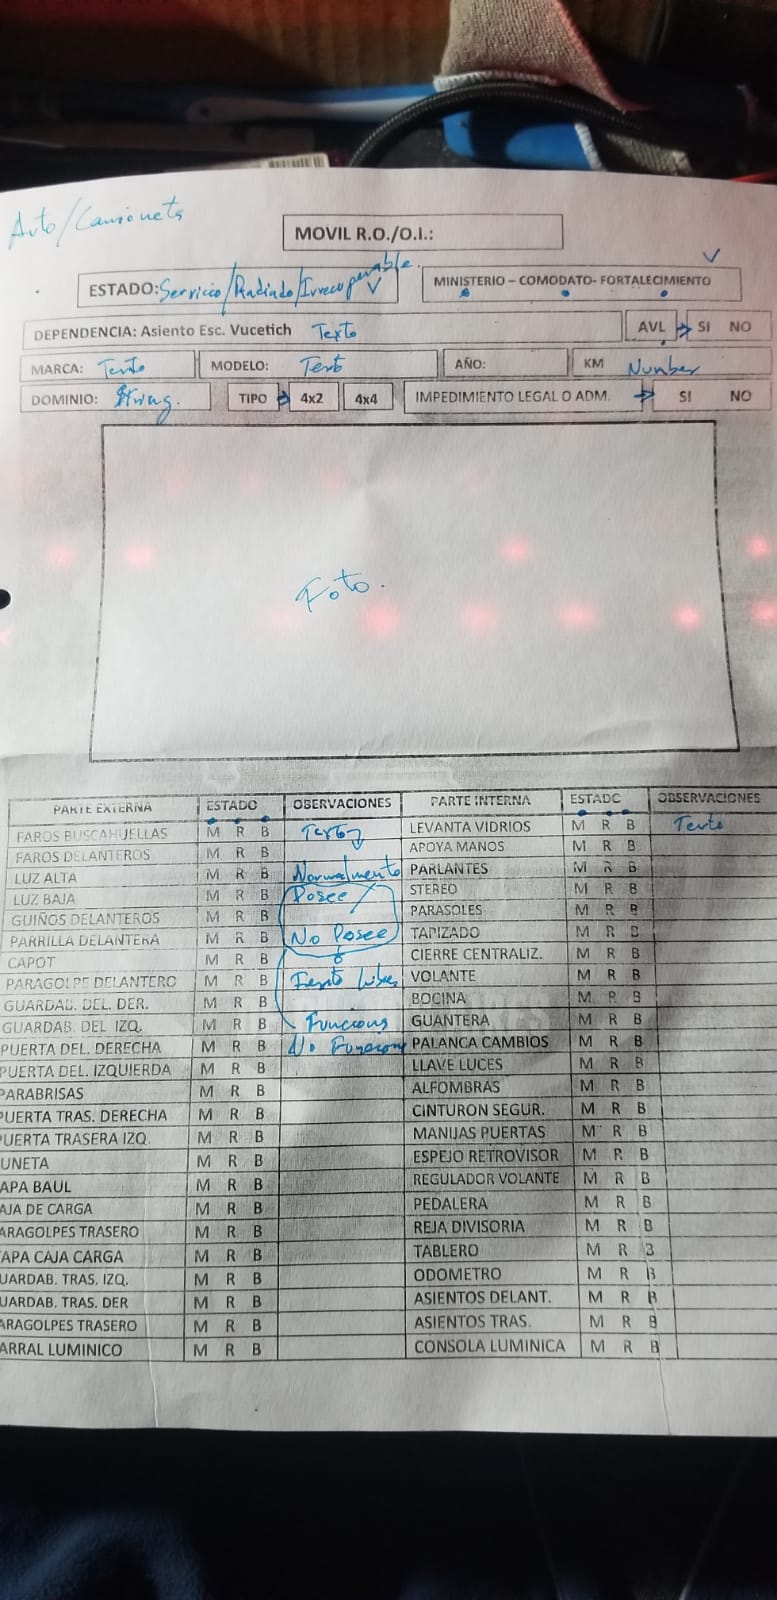 Auto/Camioneta
MOVIL R.O./O.I.:
ESTADO: Servicio/Radiado/Irrecuperable.
MINISTERIO – COMODATO- FORTALECIMIENTO
DEPENDENCIA: Asiento Esc. Vucetich Texto
AVL → SI NO
MARCA: Texto MODELO: Texto AÑO: KM Number
DOMINIO: String. TIPO → 4x2 4x4 IMPEDIMIENTO LEGAL O ADM. → SI NO
Foto.
PARTE EXTERNA ESTADO OBERVACIONES PARTE INTERNA ESTADO OBSERVACIONES
FAROS BUSCAHUELLAS M R B Texto LEVANTA VIDRIOS M R B Texto
FAROS DELANTEROS M R B APOYA MANOS M R B
LUZ ALTA M R B Normalmente PARLANTES M R B
LUZ BAJA M R B Posee STEREO M R B
GUIÑOS DELANTEROS M R B PARASOLES M R B
PARRILLA DELANTERA M R B No Posee TAPIZADO M R B
CAPOT M R B ó CIERRE CENTRALIZ. M R B
PARAGOLPE DELANTERO M R B Texto libre VOLANTE M R B
GUARDAB. DEL. DER. M R B BOCINA M R B
GUARDAB. DEL IZQ. M R B Funciona GUANTERA M R B
PUERTA DEL. DERECHA M R B No Funciona PALANCA CAMBIOS M R B
PUERTA DEL. IZQUIERDA M R B LLAVE LUCES M R B
PARABRISAS M R B ALFOMBRAS M R B
PUERTA TRAS. DERECHA M R B CINTURON SEGUR. M R B
PUERTA TRASERA IZQ. M R B MANIJAS PUERTAS M R B
UNETA M R B ESPEJO RETROVISOR M R B
APA BAUL M R B REGULADOR VOLANTE M R B
AJA DE CARGA M R B PEDALERA M R B
ARAGOLPES TRASERO M R B REJA DIVISORIA M R B
APA CAJA CARGA M R B TABLERO M R B
UARDAB. TRAS. IZQ. M R B ODOMETRO M R B
UARDAB. TRAS. DER M R B ASIENTOS DELANT. M R B
ARAGOLPES TRASERO M R B ASIENTOS TRAS. M R B
ARRAL LUMINICO M R B CONSOLA LUMINICA M R B